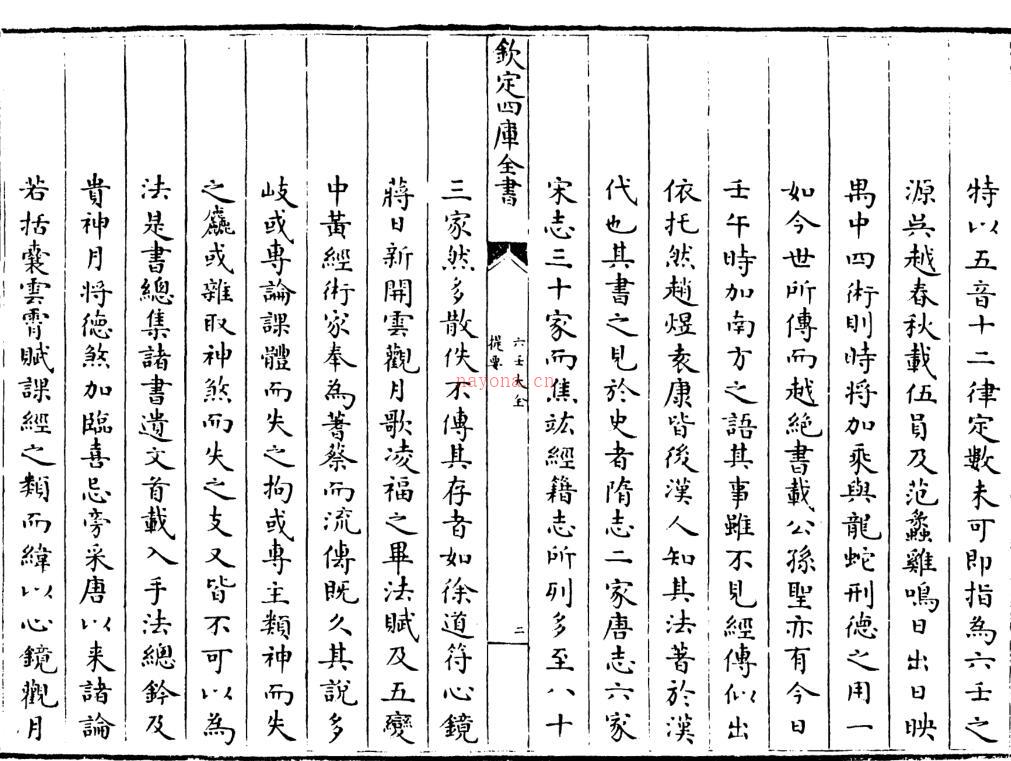 特以五音十二律定數未可即指為六壬之
源吳越春秋載伍員及范蠡雞鳴日出日昳
禺中四術則時將加乘與龍蛇刑德之用一
如今世所傳而越絶書載公孫聖亦有今日
壬午時加南方之語其事雖不見經傳似出
依托然趙煜袁康皆後漢人知其法著於漢
代也其書之見於史者隋志二家唐志六家
宋志三十家而焦竑經籍志所列多至八十
欽定四庫全書
六壬大全
提要
二
三家然多散佚不傳其存者如徐道符心鏡
蔣日新開雲觀月歌凌福之畢法賦及五變
中黃經術家奉為蓍蔡而流傳既久其說多
岐或專論課體而失之拘或專主類神而失
之麤或雜取神煞而失之支又皆不可以為
法是書總集諸書遺文首載入手法總鈐及
貴神月將德煞加臨喜忌旁采唐以來諸論
若括囊雲霄賦課經之類而緯以心鏡觀月
nayona.cn